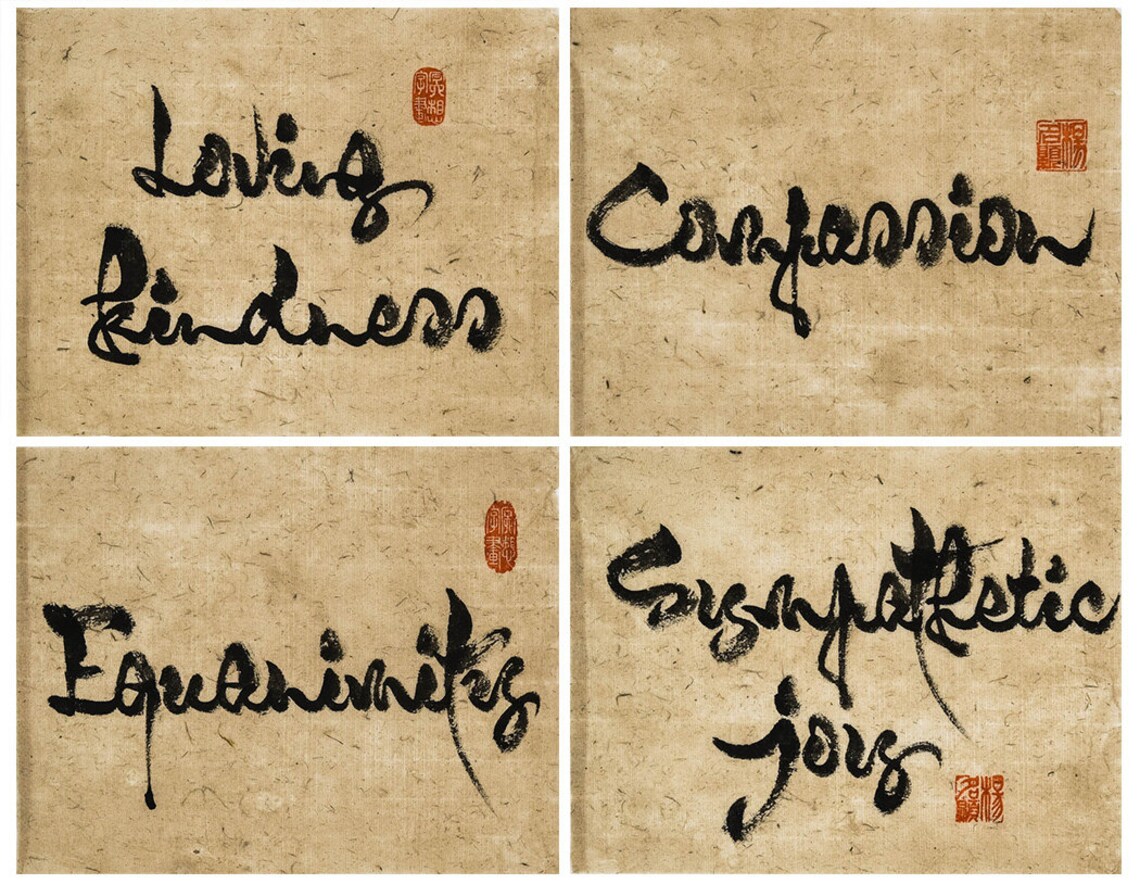 Loving
kindness
Compassion
Equanimity
Sympathetic
joy